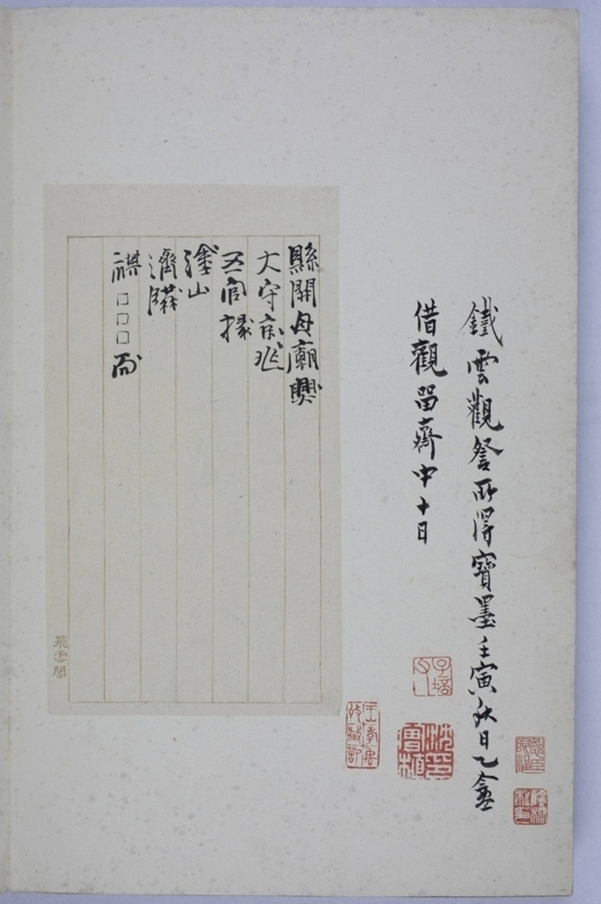 鐵雲觀詧所得寶墨壬寅秋日乙盦
借觀畱齋中十日
縣開母廟興
大守京兆
五官掾
塗山
濟
禖□□□而
飛雲閣
沈曾植印